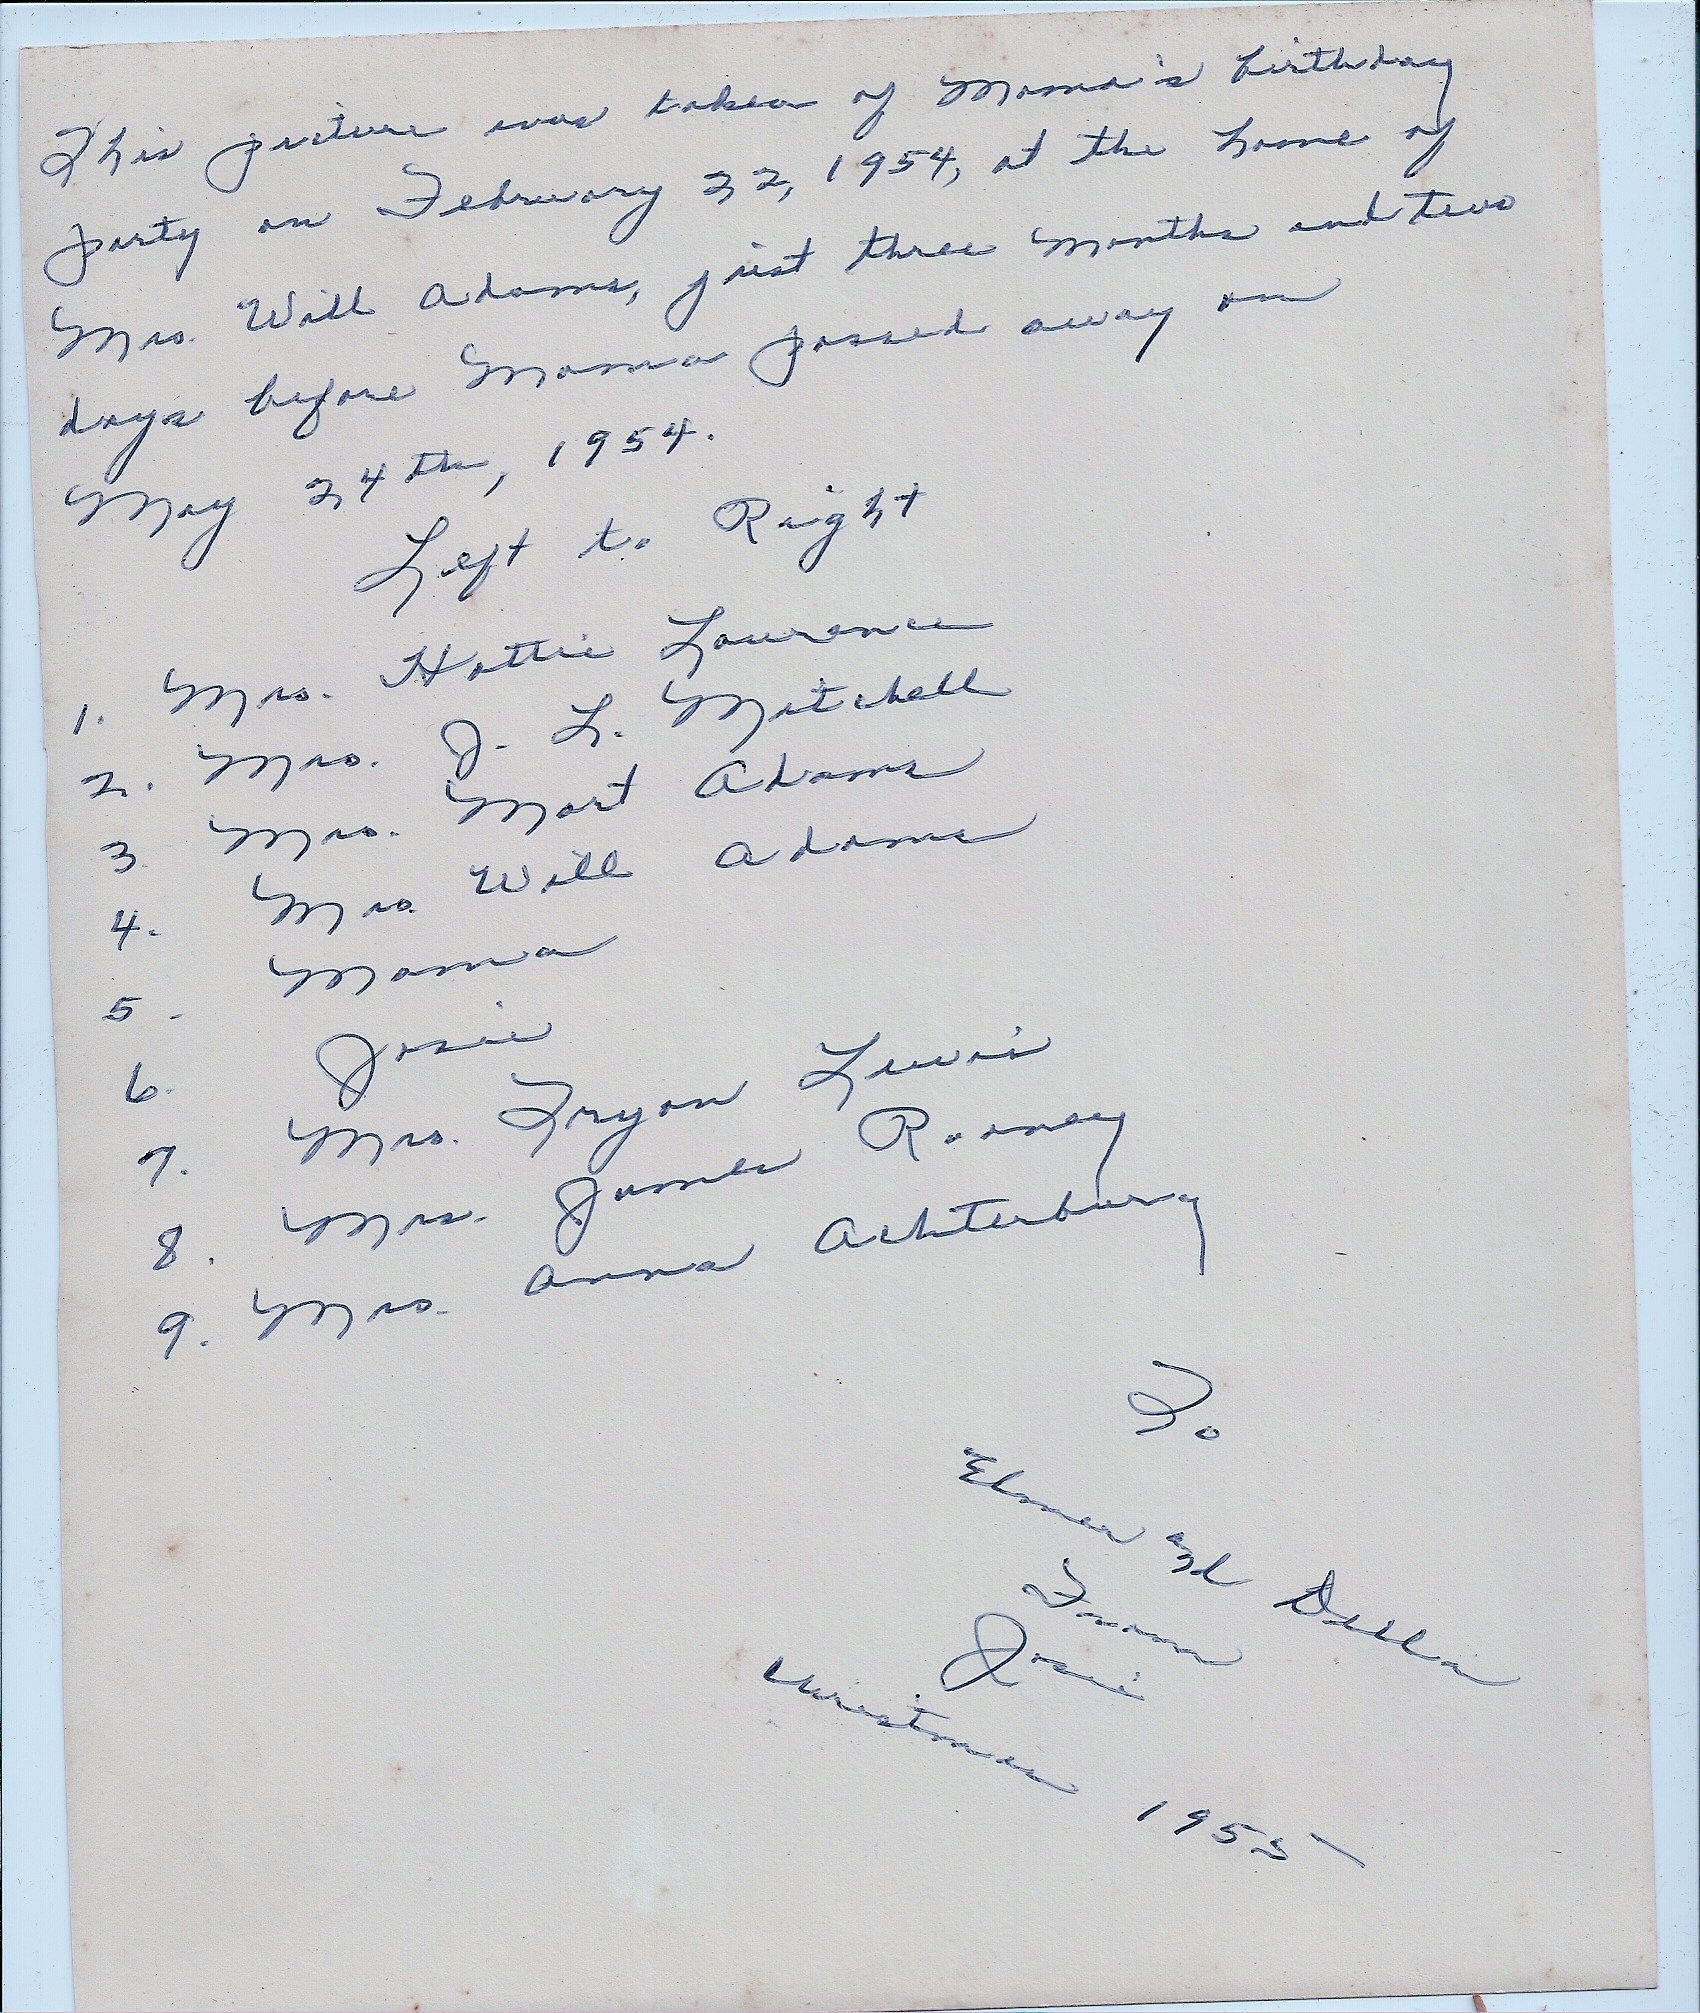 This picture was taken of Mama's birthday
party on February 22, 1954, at the home of
Mrs. Will Adams, just three months and two
days before Mama passed away on
May 24th, 1954.
Left to Right
1. Mrs. Hattie Lawrence
2. Mrs. J. L. Mitchell
3. Mrs. Mart Adams
4. Mrs. Will Adams
5. Mama
6. Josie
7. Mrs. Tryon Lewis
8. Mrs. James Rooney
9. Mrs. Anna Achterburg
To
Elmer and Della
From
Josie
Christmas 1955